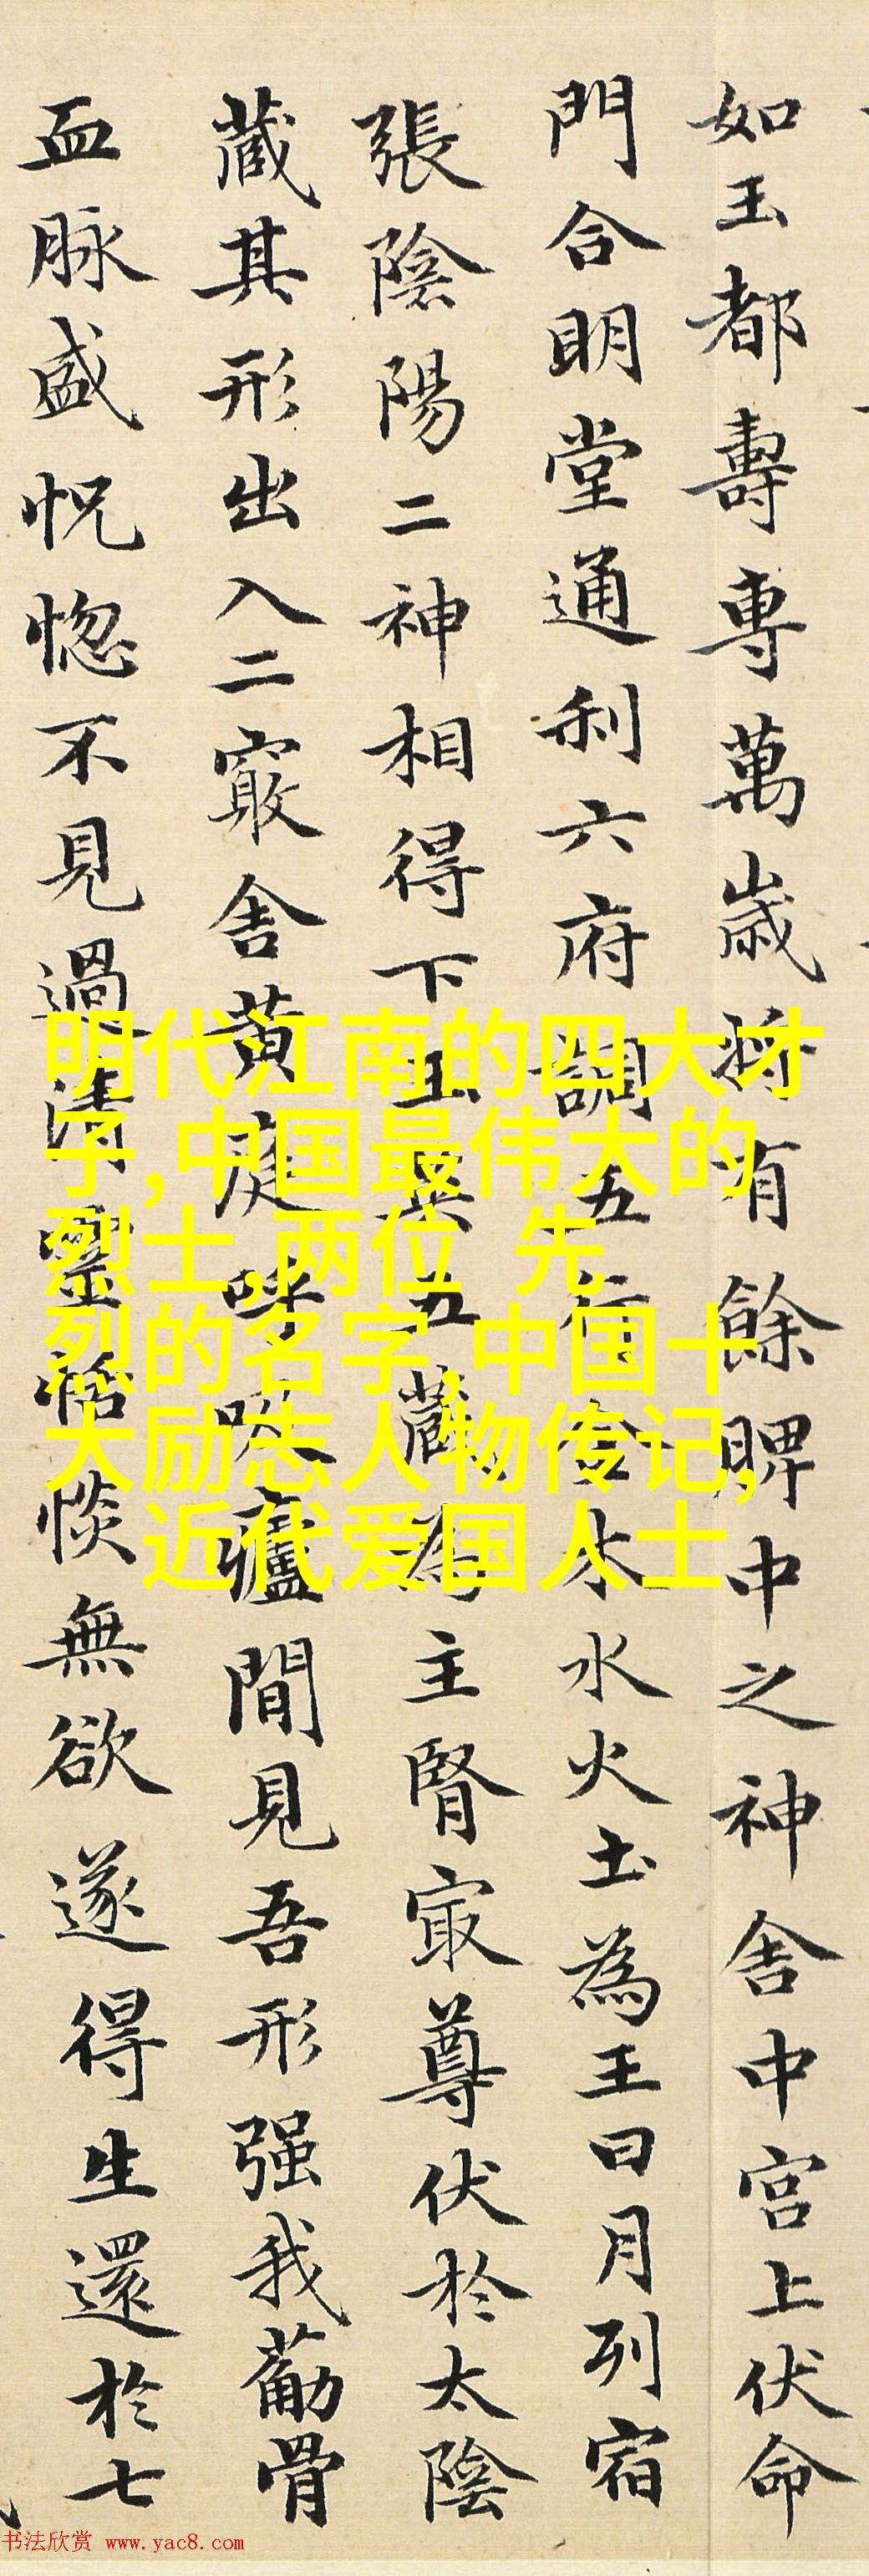 如玉都壽專萬歲將有餘脾中之神舍中宮上伏命
門合明堂通利六府調五行金木水火土為王日月列宿
張陰陽二神相得下玉英五藏為主腎㝡尊伏於太陰
藏其形出入二竅舍黃庭呼吸廬間見吾形强我筋骨
血脉盛怳惚不見過清靈恬惔無欲遂得生還於七
明代江南的四大才
子,中国最伟大的
烈士,两位 先
烈的名字,中国十
大励志人物传记,
近代爱国人士
书法欣赏 www.yac8.com